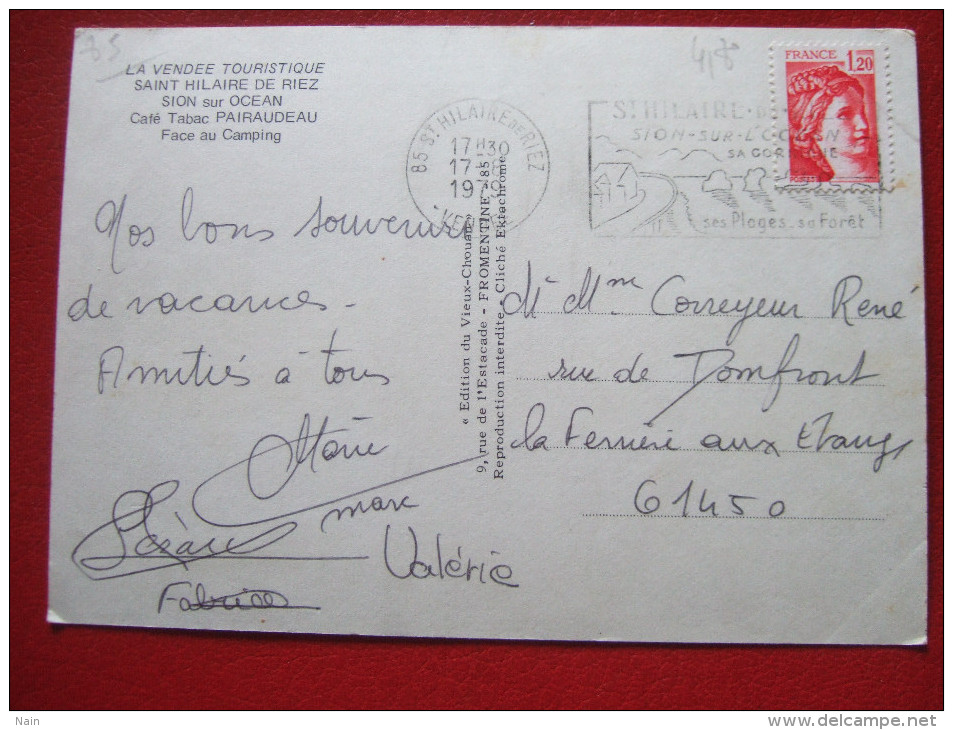 85
LA VENDEE TOURISTIQUE
SAINT HILAIRE DE RIEZ
SION sur OCEAN
Café Tabac PAIRAUDEAU
Face au Camping
85 ST HILAIRE DE RIEZ
17H30
17-8
1978
VENDEE
ST HILAIRE-DE-
SION-SUR-L'OCEAN
SA CORNICHE
ses Plages - sa Forêt
FRANCE 1,20
Nos bons souvenirs
de vacances -
Amitiés à tous
Marie
Gérard marc
Valérie
Fabrice
« Edition du Vieux-Chouan »
9, rue de l'Estacade - FROMENTINE - 85
Reproduction interdite - Cliché Ektachrome
Mr Mme Correyeur René
rue de Domfront
la Ferrière aux Etangs
61450
Nain
www.delcampe.net